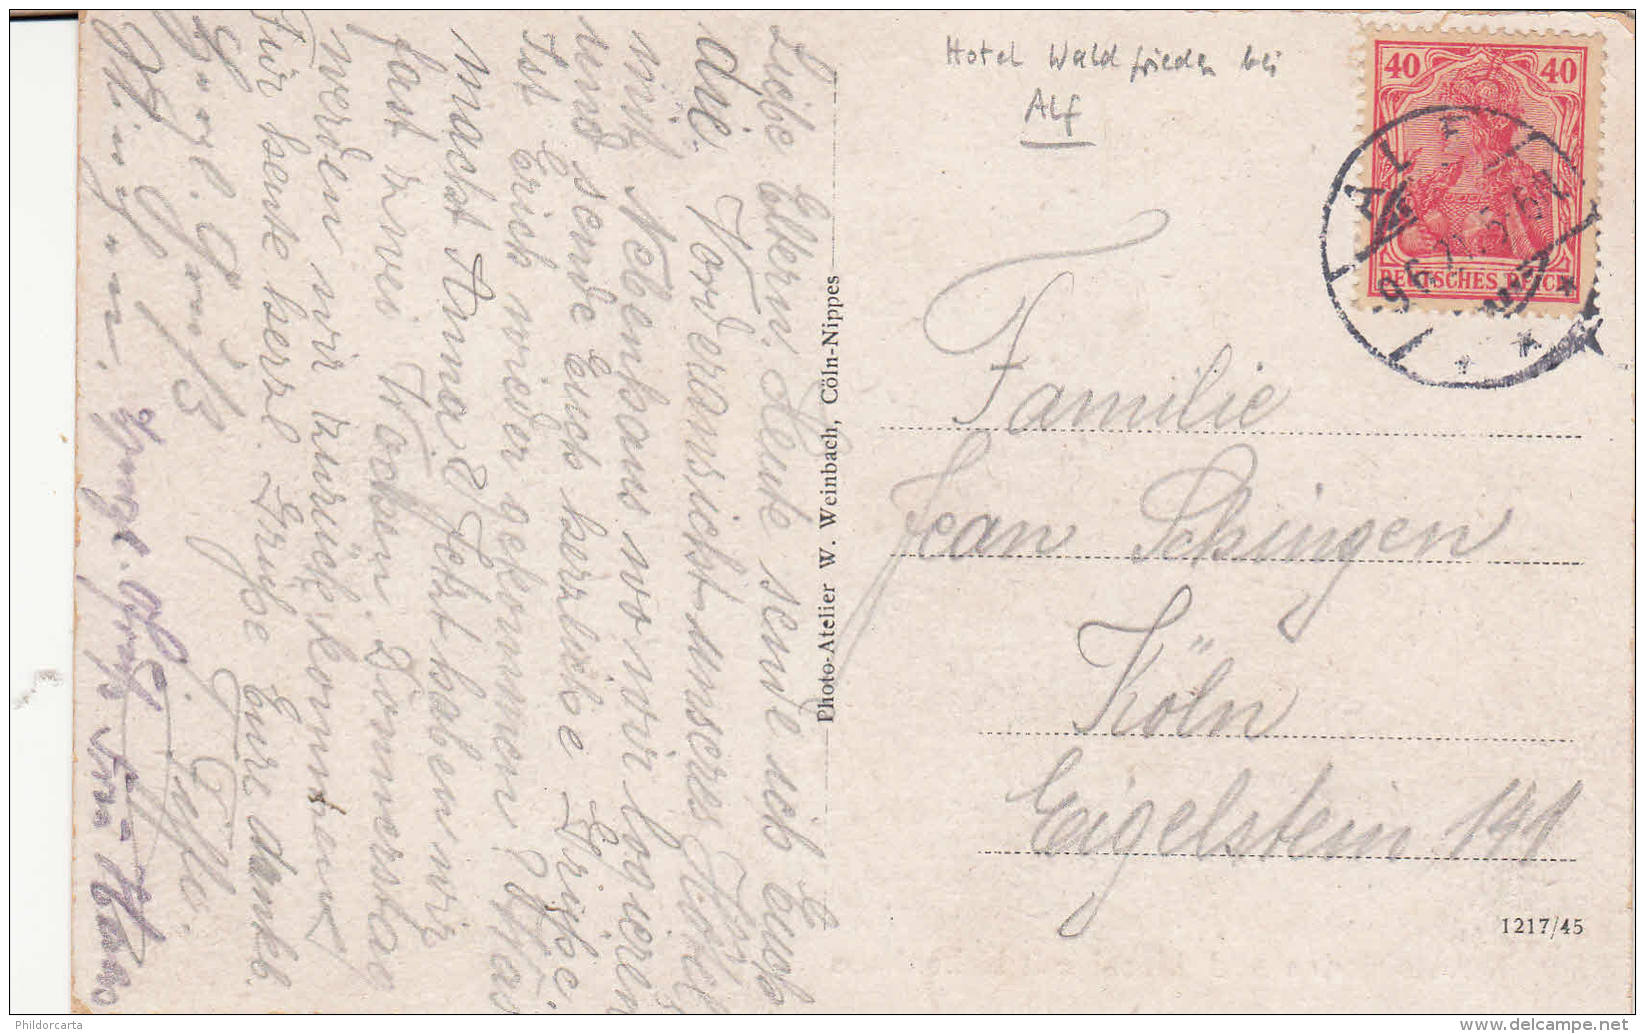 Hotel Waldfrieden bei
Alf
40 40
DEUTSCHES REICH
ALF
9.6.21.5-6N
Familie
Jean Schingen
Köln
Eigelstein 141
1217/45
Photo-Atelier W. Weinbach, Cöln-Nippes
Liebe Eltern! Heute sende ich Euch
die Vorderansicht unseres Hotels
mit Nebenhaus wo wir logieren
und sende Euch herzliche Grüße.
Ist Erich wieder gekommen? Was
macht Anna? Jetzt haben wir
fast zwei Wochen. Donnerstag
werden wir zurückkommen
Für heute herzl. Grüße Eure dankb.
Herzl. Gruß
Phildorcarta
www.delcampe.net